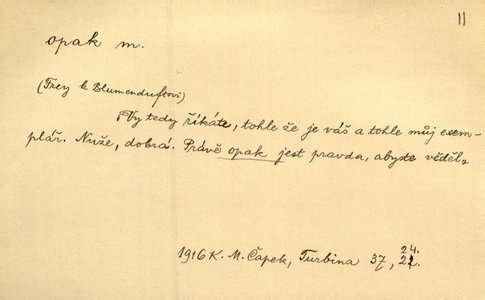 11
opak m.
(Frey k Blumenduftovi)
Vy tedy říkáte, tohle že je váš a tohle můj exem-
plár. Nuže, dobrá. Právě opak jest pravda, abyste věděl.
1916 K. M. Čapek, Turbina 37, 24.